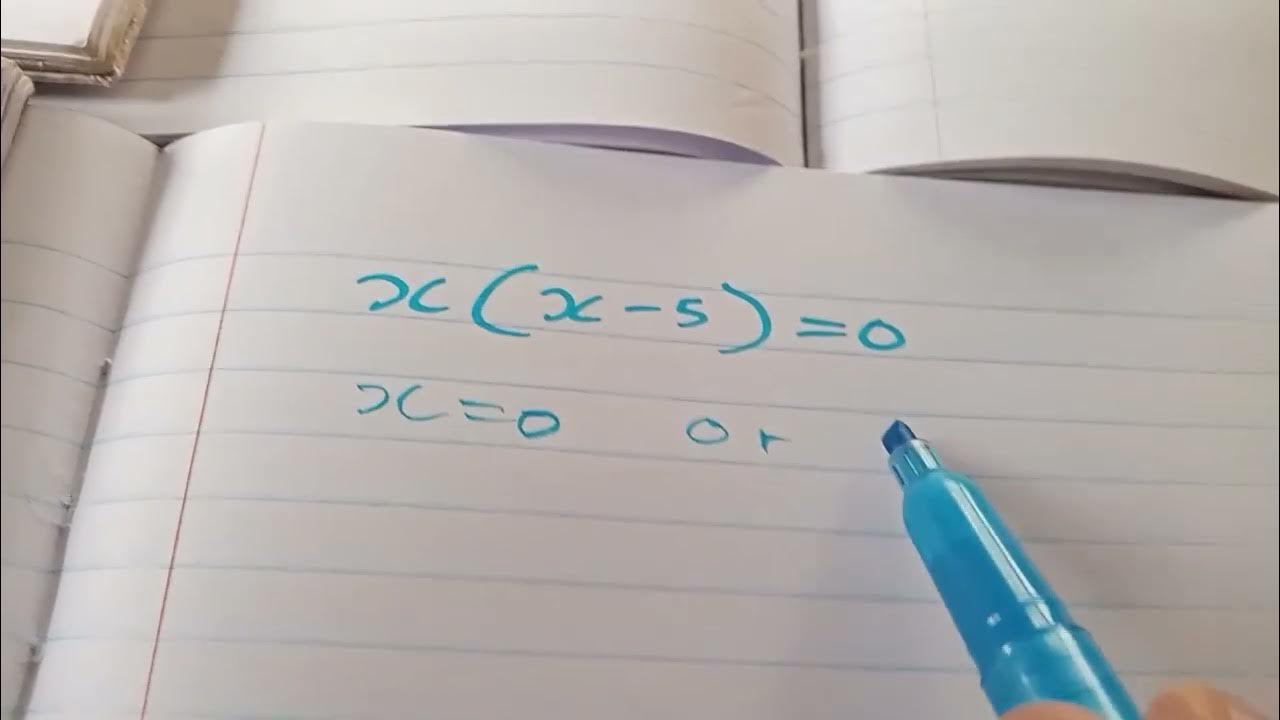 x(x-5)=0
x=0 or